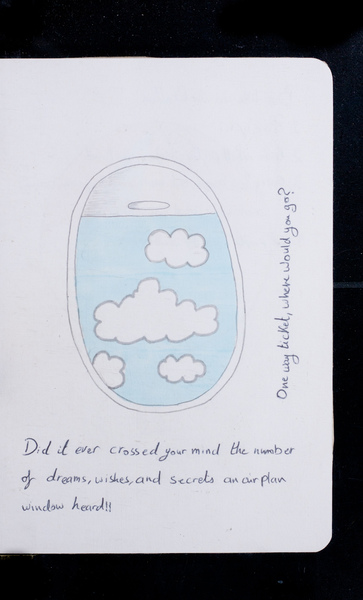 One way ticket, where would you go?
Did it ever crossed your mind the number
of dreams, wishes, and secrets an air plan
window heard!!